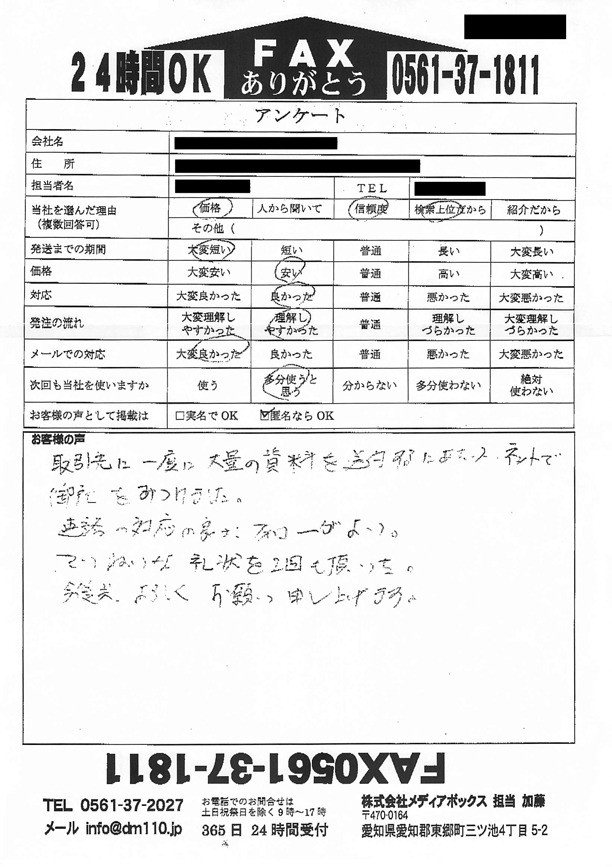 24時間OK
FAX
ありがとう
0561-37-1811
アンケート
会社名
住　所
担当者名 TEL
当社を選んだ理由 価格 人から聞いて 信頼度 検索上位だから 紹介だから
(複数回答可) その他( )
発送までの期間 大変短い 短い 普通 長い 大変長い
価格 大変安い 安い 普通 高い 大変高い
対応 大変良かった 良かった 普通 悪かった 大変悪かった
発注の流れ 大変理解しやすかった 理解しやすかった 普通 理解しづらかった 大変理解しづらかった
メールでの対応 大変良かった 良かった 普通 悪かった 大変悪かった
次回も当社を使いますか 使う 多分使うと思う 分からない 多分使わない 絶対使わない
お客様の声として掲載は □実名でOK ☑匿名ならOK
お客様の声
取引先に一度に大量の資料を送付するにあたって、ネットで
御社をみつけました。
電話の対応の良さ
ていねいな礼状を2回も頂いた。
今後共、よろしくお願い申し上げます。
FAX0561-37-1811
TEL 0561-37-2027
メール info@dm110.jp
お電話でのお問合せは
土日祝祭日を除く9時～17時
365日24時間受付
株式会社メディアボックス 担当 加藤
〒470-0164
愛知県愛知郡東郷町三ツ池4丁目5-2